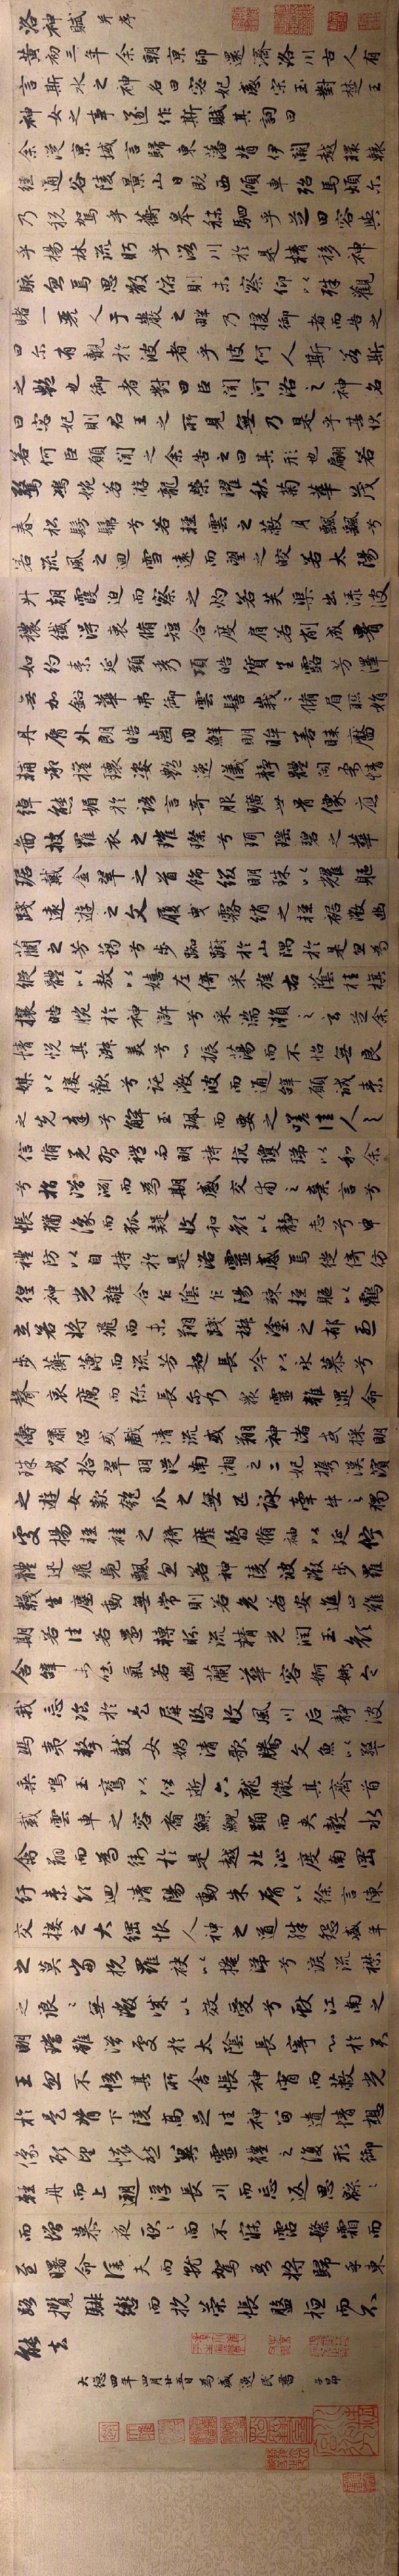 洛神賦 并序
黃初三年余朝京師還濟洛川古人有
言斯水之神名曰宓妃感宋玉對楚王
神女之事遂作斯賦其詞曰
余從京域言歸東藩背伊闕越轘轅
經通谷陵景山日既西傾車殆馬煩爾
乃税駕乎蘅皋秣駟乎芝田容與
乎楊林流眄乎洛川於是精移神
駭忽焉思散俯則未察仰以殊觀
睹一麗人于巖之畔乃援御者而告之
曰爾有覿於彼者乎彼何人斯若斯
之艷也御者對曰臣聞河洛之神名
曰宓妃則君王之所見無乃是乎其狀
若何臣願聞之余告之曰其形也翩若
驚鴻婉若游龍榮曜秋菊華茂
春松髣髴兮若輕雲之蔽月飄飄兮
若流風之迴雪遠而望之皎若太陽
升朝霞迫而察之灼若芙蕖出淥波
穠纖得衷脩短合度肩若削成腰
如約素延頸秀項皓質呈露芳澤
無加鉛華弗御雲髻峩峩脩眉聯娟
丹脣外朗皓齒內鮮明眸善睞靨
輔承權瓌姿艷逸儀靜體閑柔情
綽態媚於語言奇服曠世骨像應
圖披羅衣之璀璨兮珥瑤碧之華
琚戴金翠之首飾綴明珠以耀軀
踐遠遊之文履曳霧綃之輕裾微幽
蘭之芳藹兮步踟躕於山隅於是忽焉
縱體以敖以嬉左倚采旄右蔭桂旗
攘皓腕於神滸兮采湍瀨之玄芝余
情悅其淑美兮心振蕩而不怡無良
媒以接歡兮託微波而通辭願誠素
之先達兮解玉珮而要之嗟佳人之
信脩羌習禮而明詩抗瓊珶以和余
兮指潛淵而為期感交甫之棄言兮
悵猶豫而狐疑收和顏以靜志兮申
禮防以自持於是洛靈感焉徙倚彷
徨神光離合乍陰乍陽竦輕軀以鶴
立若將飛而未翔踐椒塗之郁烈
步蘅薄而流芳超長吟以永慕兮
聲哀厲而彌長爾乃衆靈雜遝命
儔嘯侶或戲清流或翔神渚或採明
珠或拾翠羽從南湘之二妃攜漢濱
之遊女歎匏瓜之無匹詠牽牛之獨
處揚輕袿之猗靡翳脩袖以延佇
體迅飛鳧飄忽若神陵波微步羅
襪生塵動無常則若危若安進止難
期若往若還轉眄流精光潤玉顏
含辭未吐氣若幽蘭華容婀娜令
我忘飡於是屏翳收風川后靜波
馮夷擊鼓女媧清歌騰文魚以警
乘鳴玉鸞以偕逝六龍儼其齊首
載雲車之容裔鯨鯢踊而夾轂水
禽翔而為衛於是越北沚度南岡
紆素領迴清陽動朱脣以徐言陳
交接之大綱恨人神之道殊怨盛年
之莫當抗羅袂以掩涕兮淚流襟
之浪浪無微情以效愛兮獻江南之
明璫雖潛處於太陰長寄心於君
王忽不悟其所舍悵神宵而蔽光
於是背下陵高足往神留遺情想
像顧望懷愁冀靈體之復形御
輕舟而上遡浮長川而忘返思緜緜
而增慕夜耿耿而不寐霑繁霜而
至曙命僕夫而就駕吾將歸乎東
路攬騑轡而抗策悵盤桓而不
能去
大德四年四月廿五日為盛逸民書 子昂